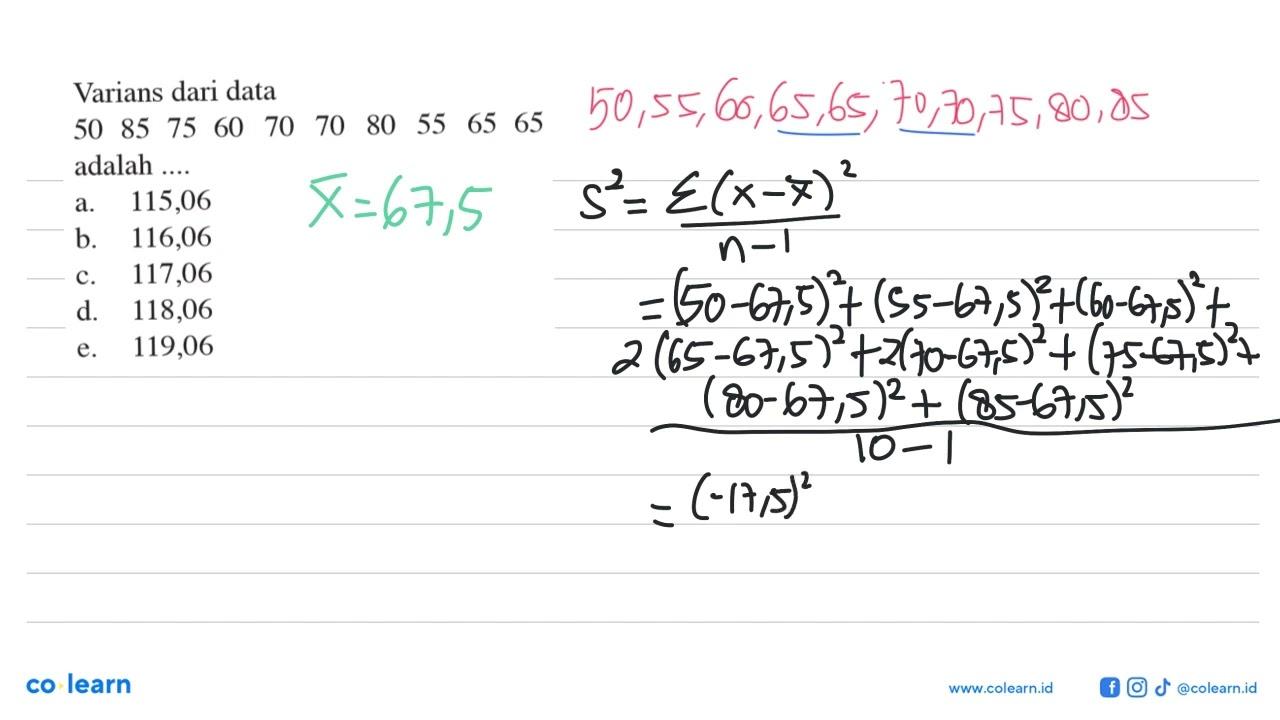 Varians dari data
50 85 75 60 70 70 80 55 65 65
adalah ....
a. 115,06
b. 116,06
c. 117,06
d. 118,06
e. 119,06
x̄ = 67,5
50, 55, 60, 65, 65, 70, 70, 75, 80, 85
S² = Σ(x - x̄)²
n - 1
= (50 - 67,5)² + (55 - 67,5)² + (60 - 67,5)² +
2(65 - 67,5)² + 2(70 - 67,5)² + (75 - 67,5)² +
(80 - 67,5)² + (85 - 67,5)²
10 - 1
= (-17,5)²
co learn
www.colearn.id
@colearn.id